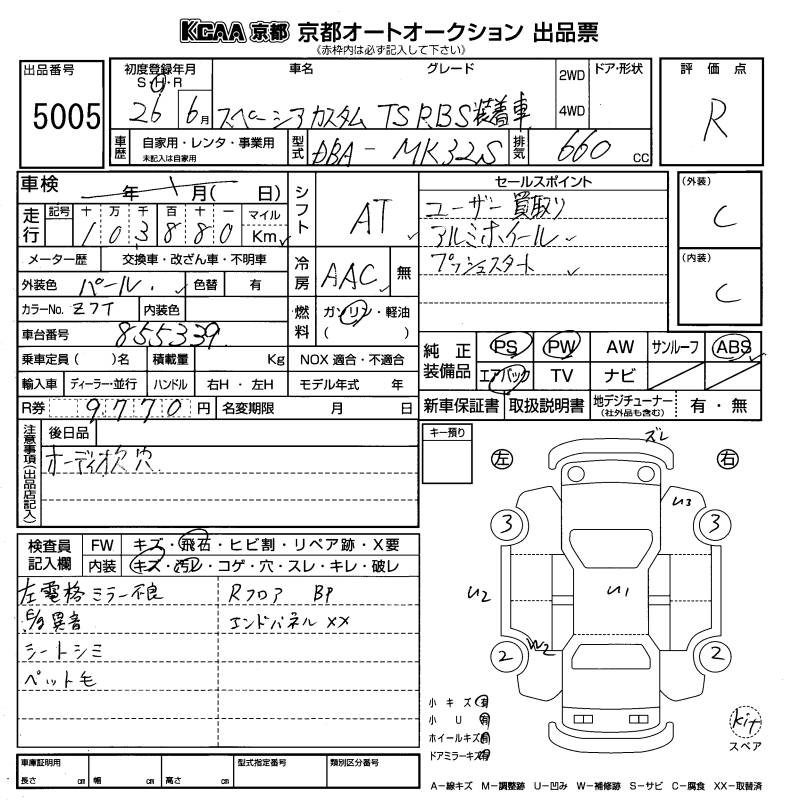 KCAA 京都 京都オートオークション 出品票
(赤枠内は必ず記入して下さい)
出品番号
5005
初度登録年月
S・H・R
26 6月
車名 グレード
スペーシアカスタム TS R.B.S装着車
2WD
4WD
ドア・形状
評価点
R
車歴
自家用・レンタ・事業用
未記入は自家用
型式
DBA-MK32S
排気
660 cc
車検
年 月( 日)
走行
記号 十 万 千 百 十 一
103880
マイル
Km
シフト
AT
セールスポイント
ユーザー買取り
アルミホイール
プッシュスタート
(外装)
C
(内装)
C
メーター歴 交換車・改ざん車・不明車
外装色 パール 色替 有
冷房
AAC 無
カラーNo. Z7T 内装色
燃料
ガソリン・軽油
( )
車台番号
855339
乗車定員 ( )名 積載量 Kg NOX 適合・不適合
輸入車 ディーラー・並行 ハンドル 右H・左H モデル年式 年
R券 9770円 名変期限 月 日
純正装備品
PS PW AW サンルーフ ABS
エアバック TV ナビ
新車保証書 取扱説明書 地デジチューナー
(社外品も含む)
有・無
注意事項(出品店記入)
後日品
オーディオ欠 穴
キー預り
検査員記入欄
FW キズ・飛石・ヒビ割・リペア跡・X要
内装 キズ・汚レ・コゲ・穴・スレ・キレ・破レ
左電格ミラー不良
異音
シートシミ
ペット毛
Rフロア BP
エンドパネル XX
左 右
ズレ
U3
3 3
U2
U1
W2
2 2
小キズ 有
小U 有
ホイールキズ 有
ドアミラーキズ 有
kit
スペア
車庫証明用
長さ cm 幅 cm 高さ cm
型式指定番号
類別区分番号
A−線キズ M−調整跡 U−凹み W−補修跡 S−サビ C−腐食 XX−取替済